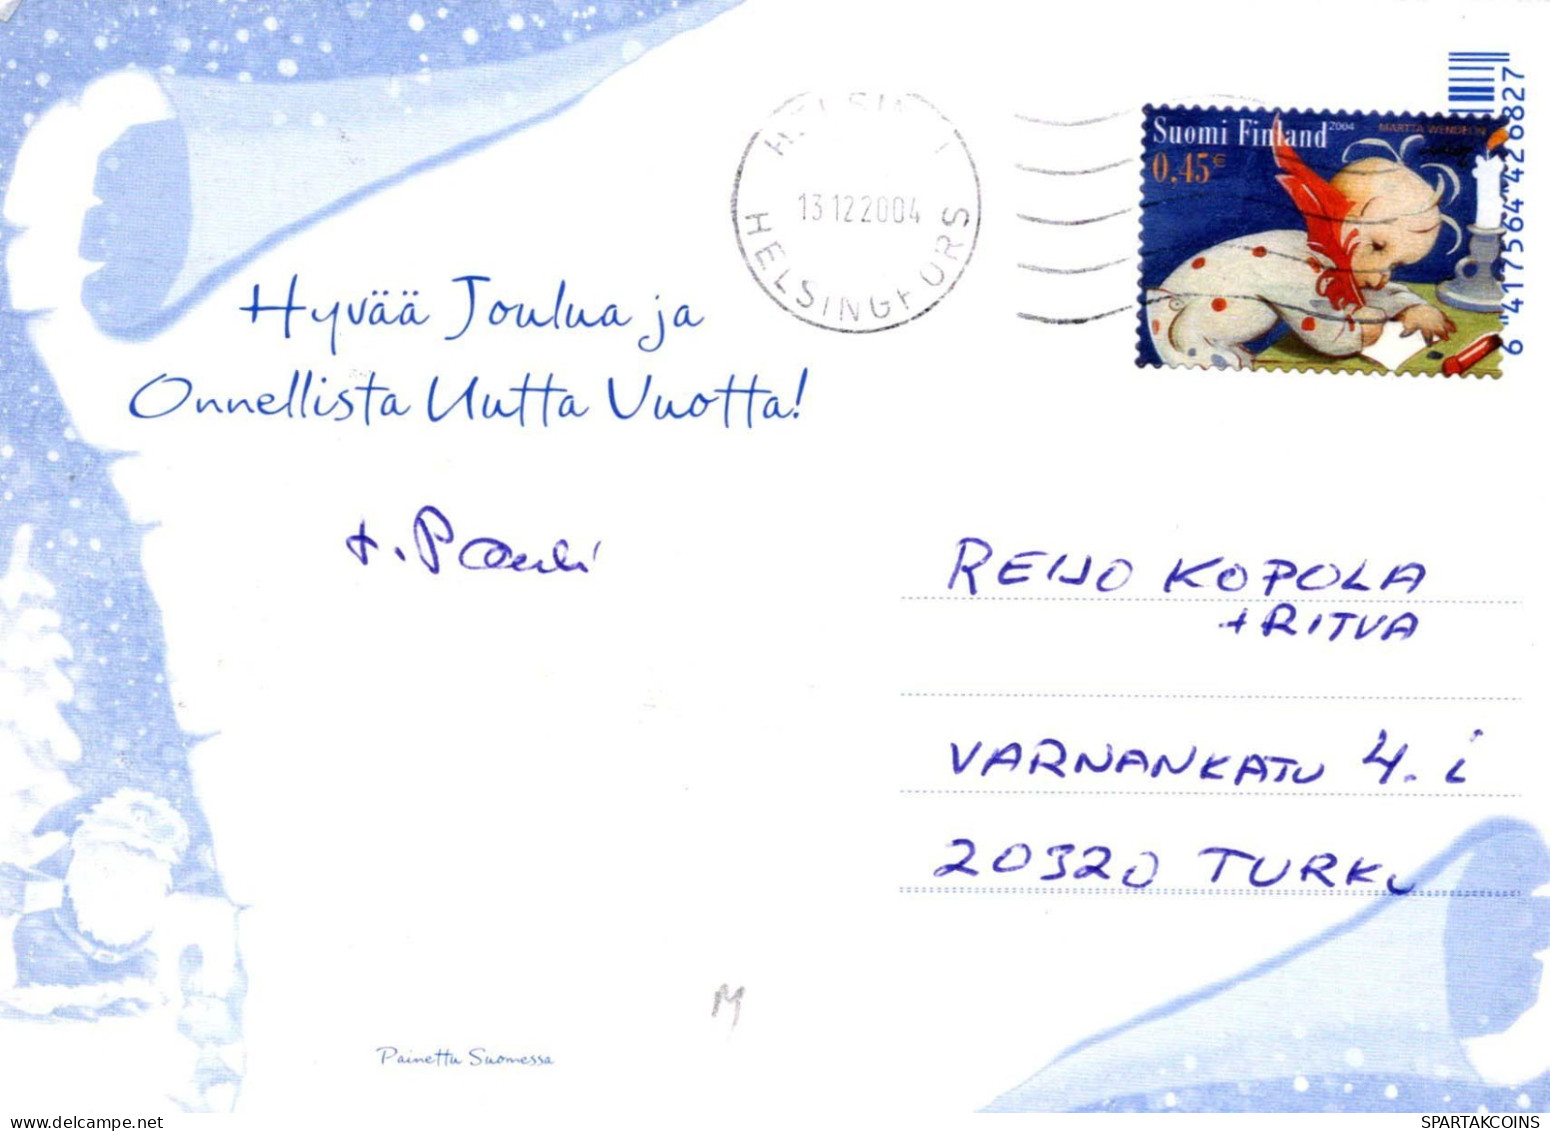 HELSIN I
HELSINGFORS
13 12 2004
Suomi Finland 2004
0,45€
MARTTA WENDELIN
6 417564 426827
Hyvää Joulua ja
Onnellista Uutta Vuotta!
t. Pauli
REIJO KOPOLA
+ RITVA
VARNANKATU 4. i
20320 TURKU
M
Painettu Suomessa
delcampe.net
SPARTAKCOINS